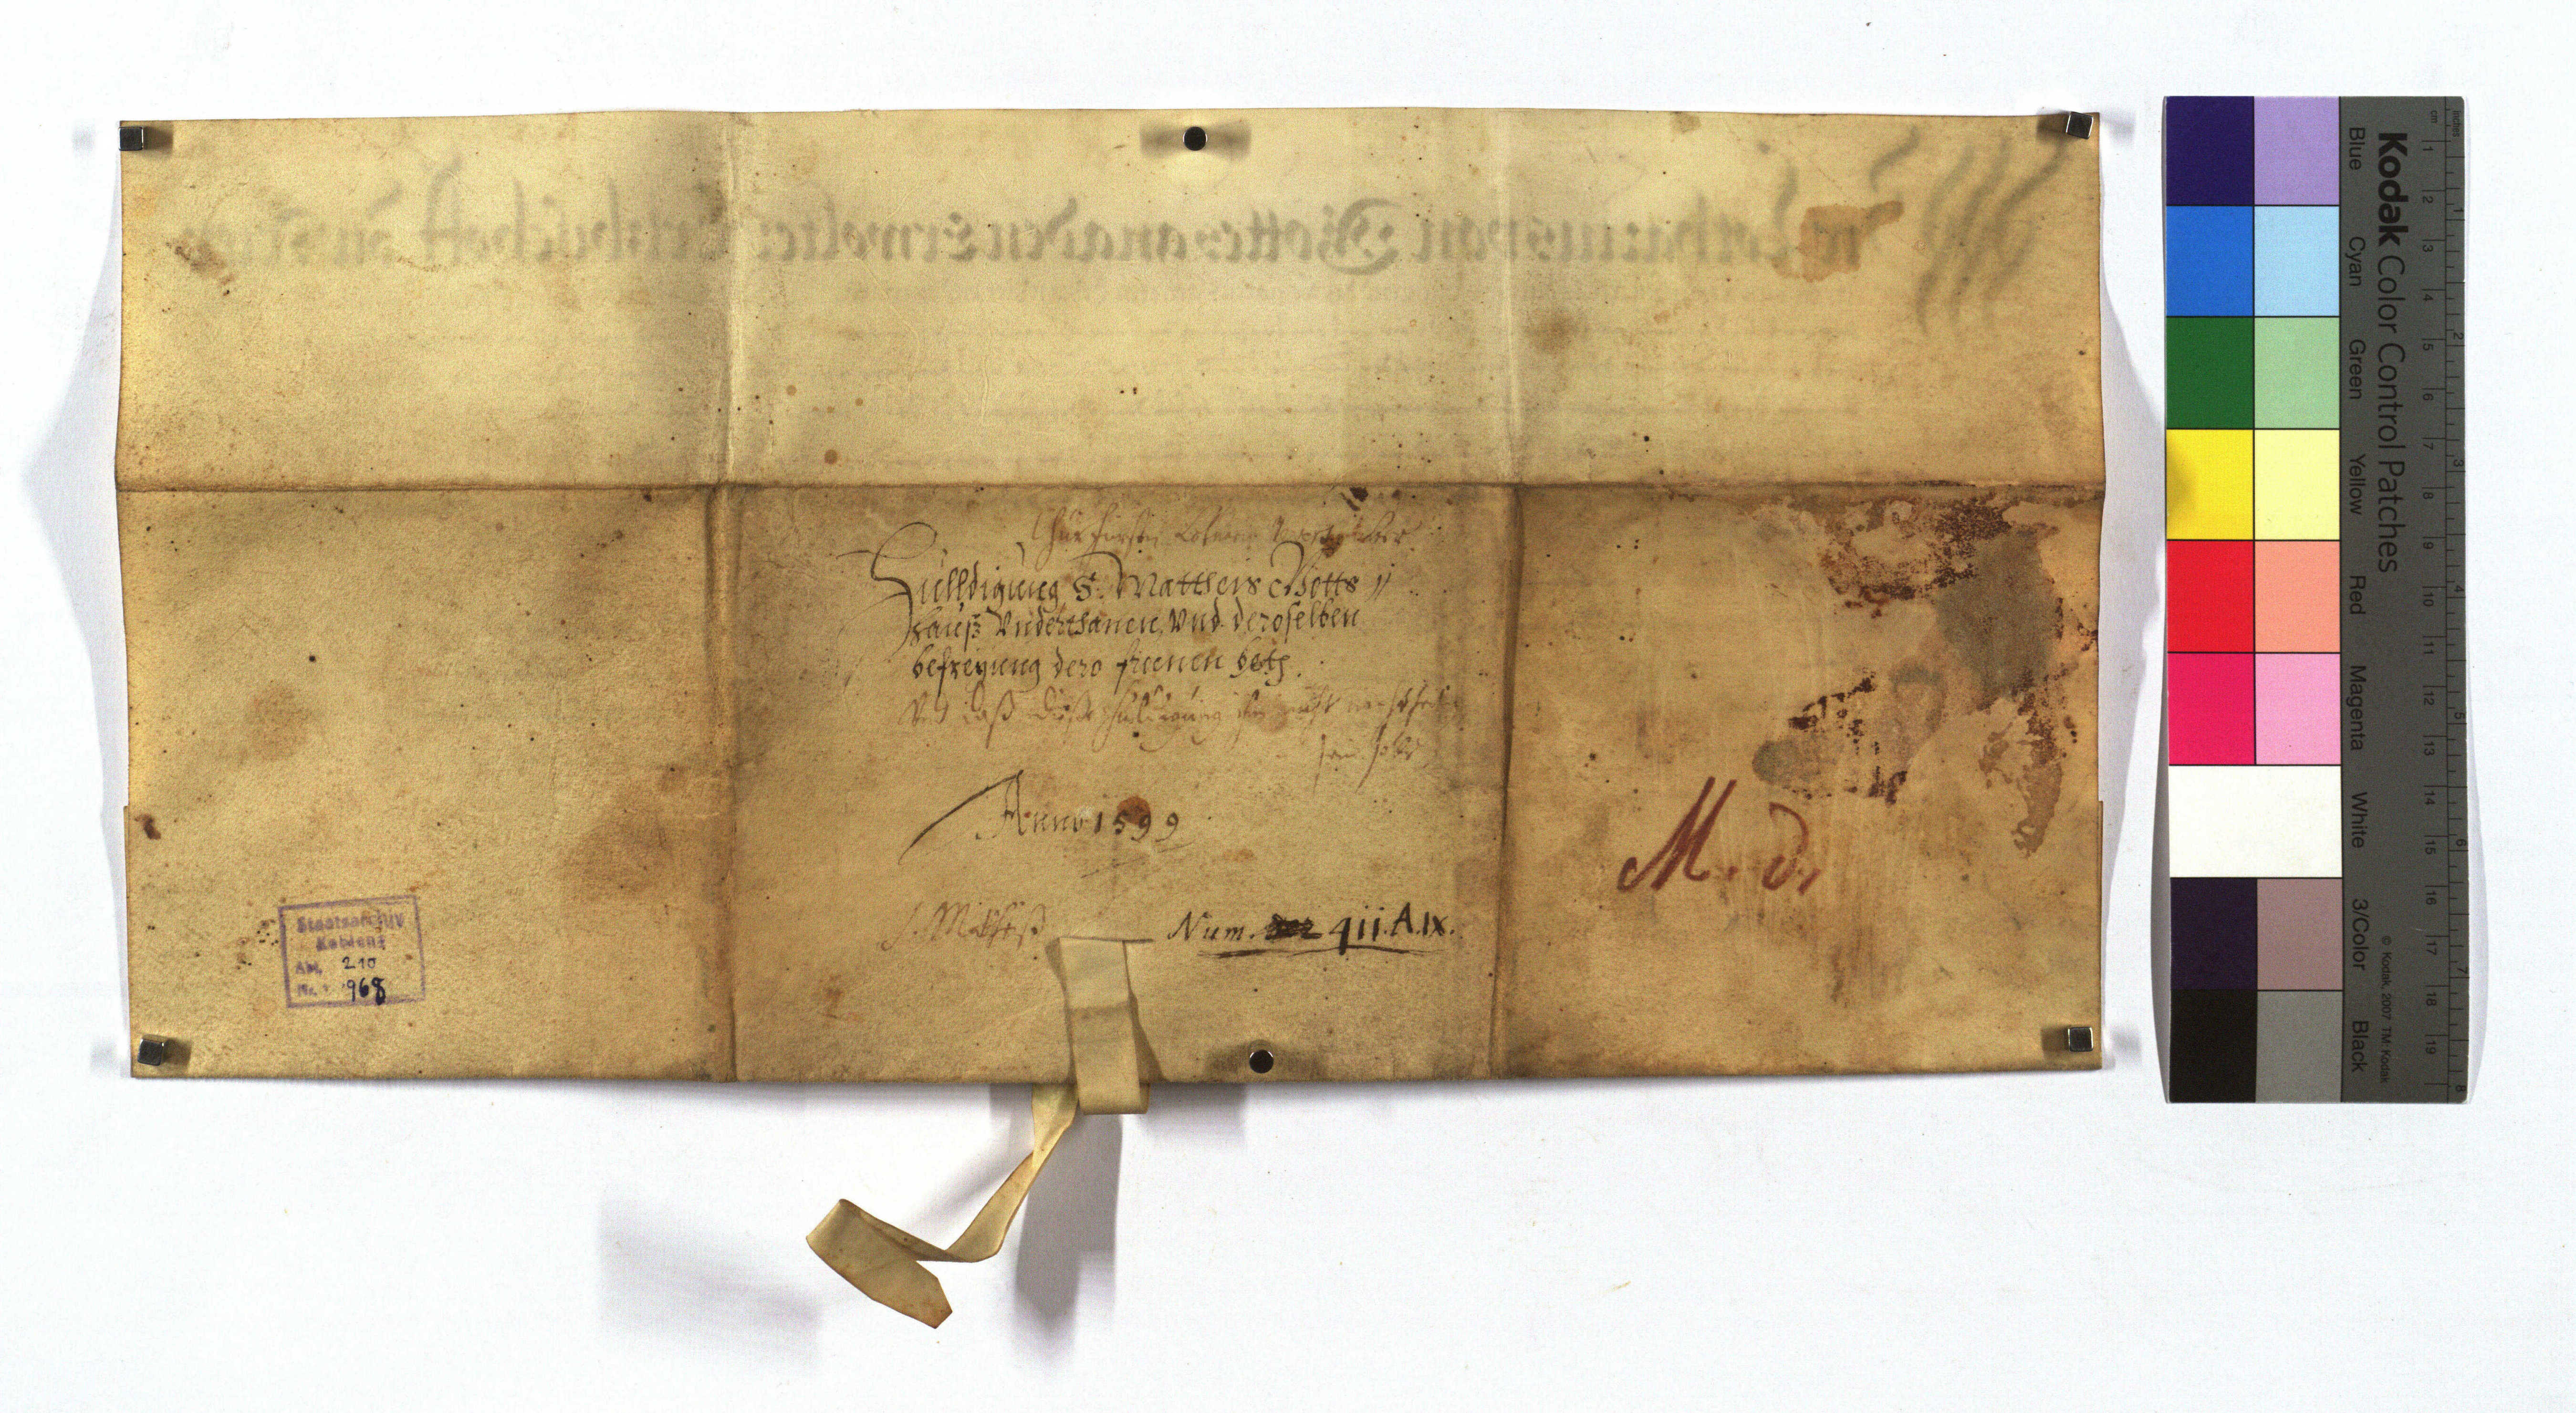 Chur fürsten
Hülldigung S. Mattheis Gotts //
hauß Underthanen, Und deroselben
befreyung dero freenen bets.
Vnd daß diese huldigung ihn nicht
sein solle
Anno 1599
S. Mathiß
Num. 411.A.IX.
M. d,
Staatsarchiv
Koblenz
Abt. 210
Nr. 968
Kodak Color Control Patches
Blue Cyan Green Yellow Red Magenta White 3/Color Black
© Kodak, 2007 TM: Kodak
cm 1 2 3 4 5 6 7 8 9 10 11 12 13 14 15 16 17 18 19
inches 1 2 3 4 5 6 7 8